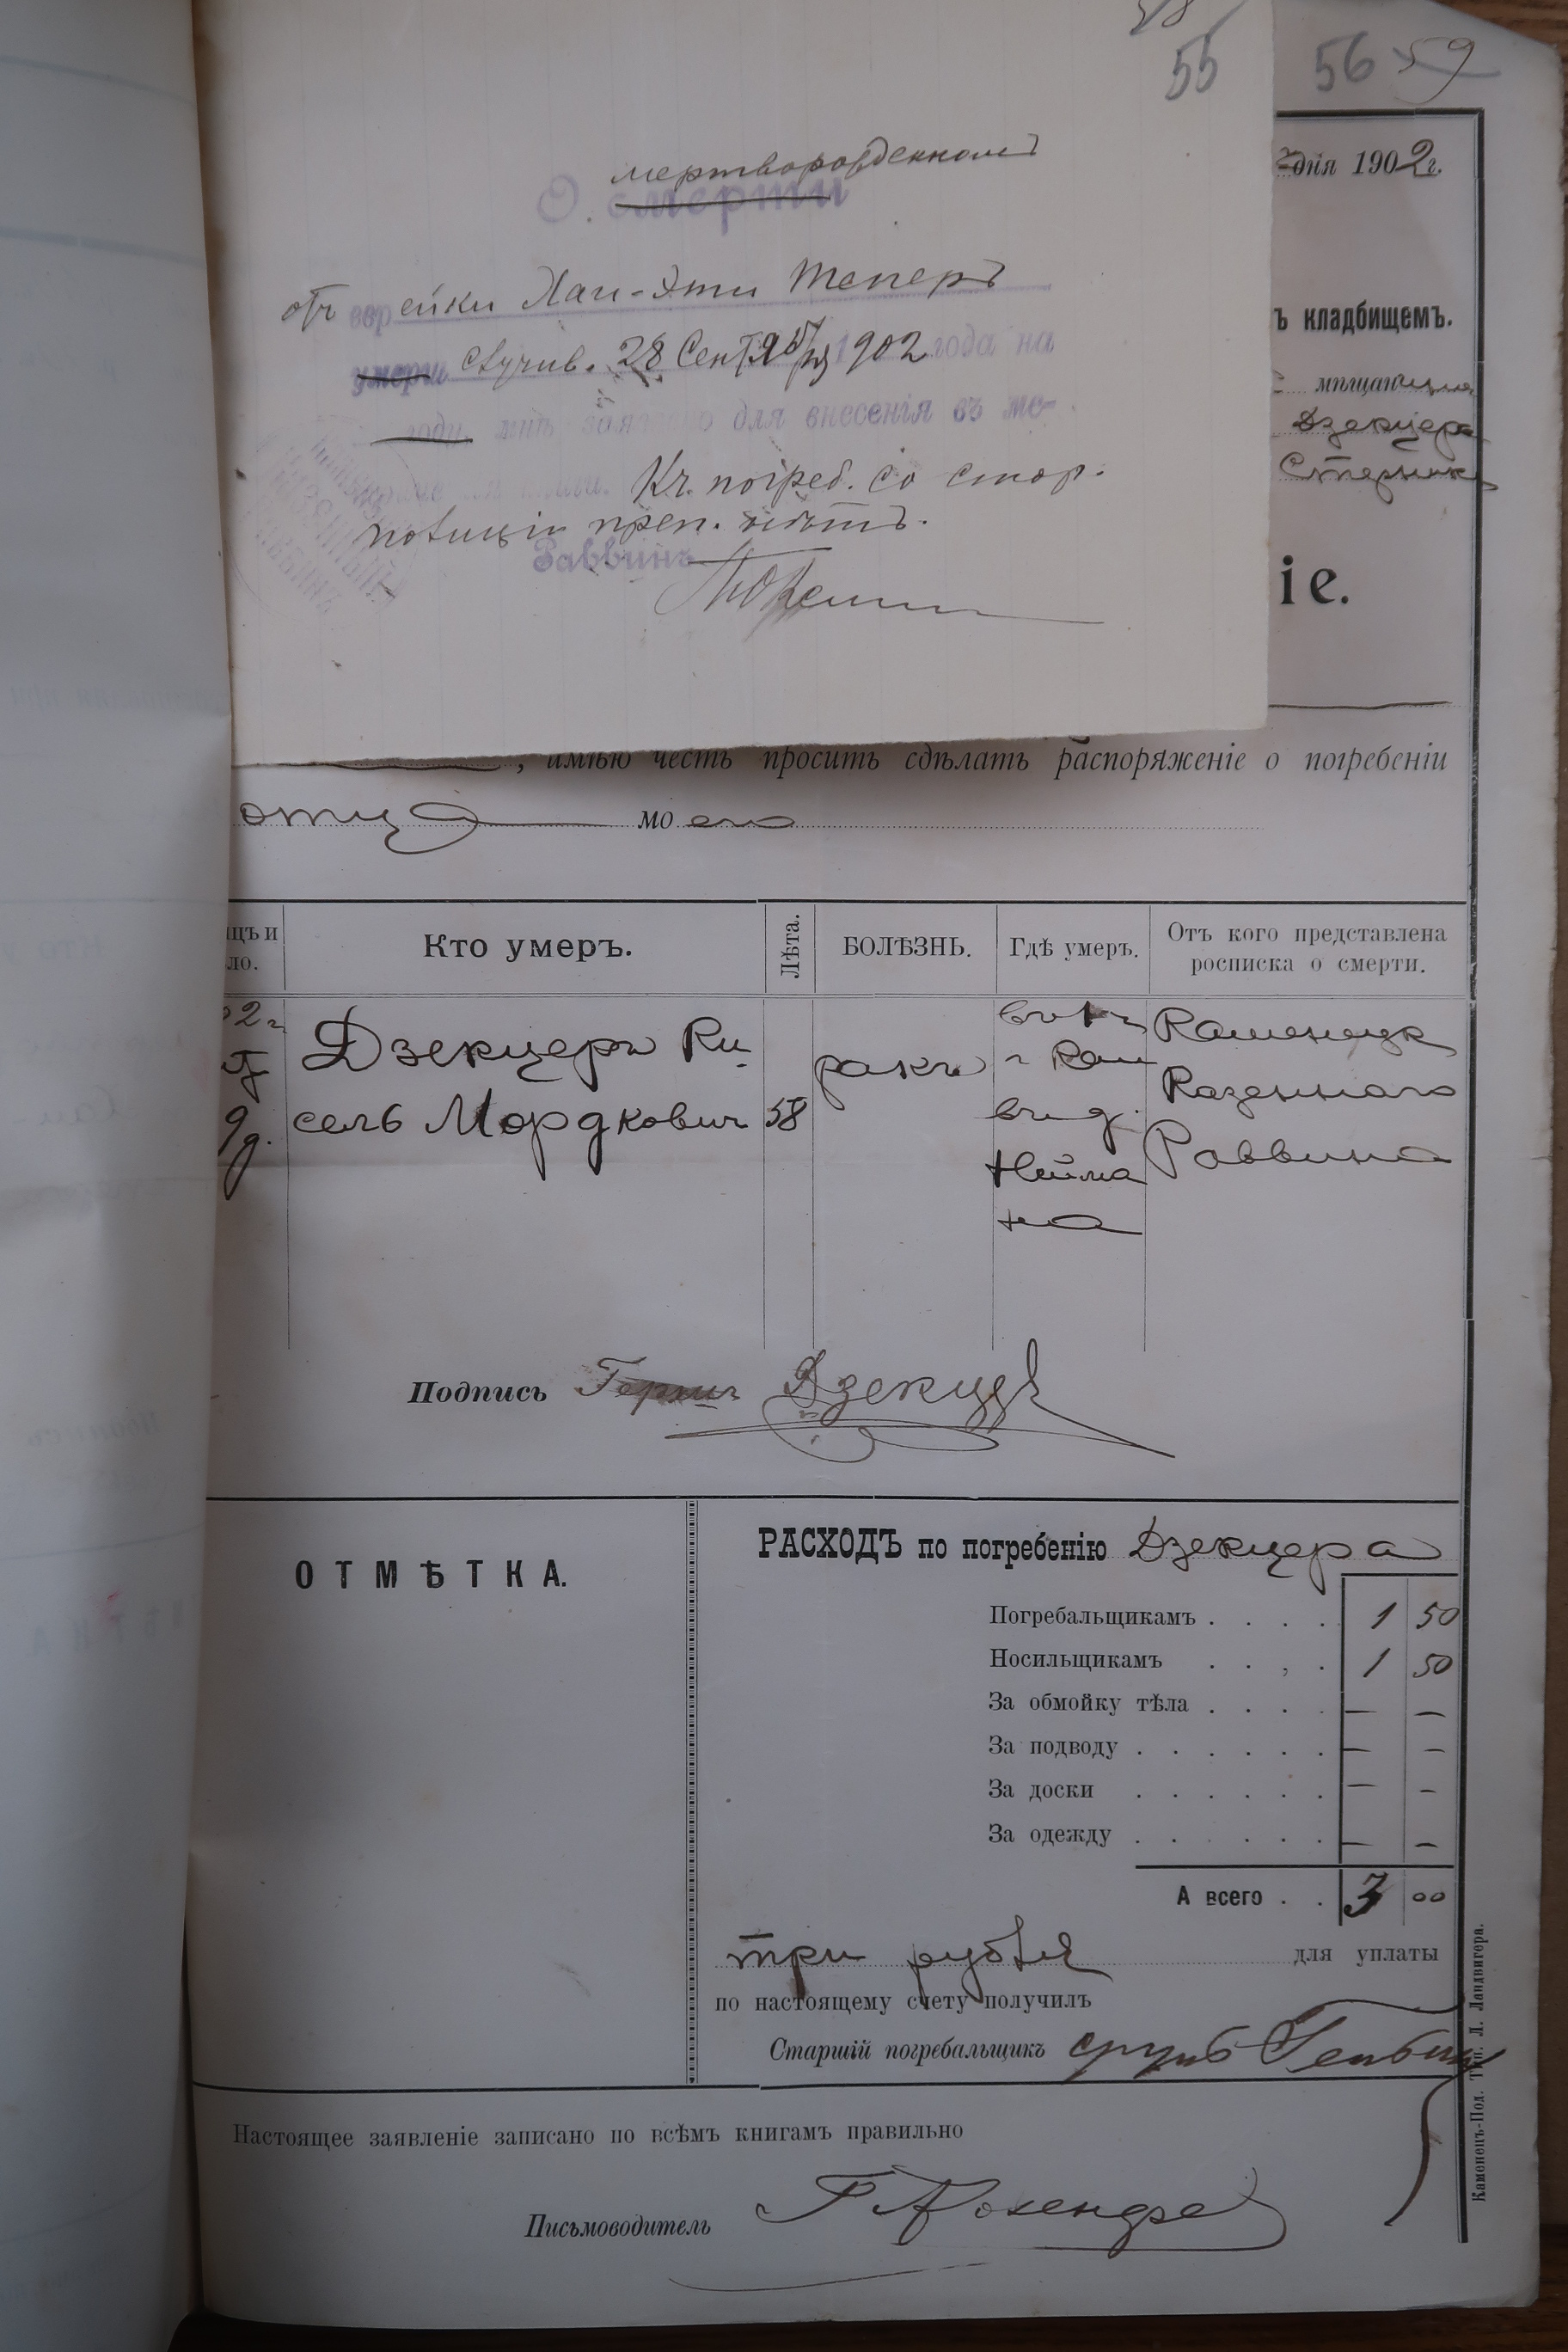 55
56 59
мертворожденномъ
О смерти
отъ еврейки Хаи-Эти Теперъ
умерш случив. 28 Сентября 1902 года на
году мнѣ заявлено для внесенія въ ме-
Къ погреб. со стор.
полиціи преп. нѣтъ.
Раввинъ
КАЗЕННЫЙ
РАВВИНЪ
дня 1902г.
ъ кладбищемъ.
мѣщанина
Дзекцера
іе.
, имѣю честь просить сдѣлать распоряженіе о погребеніи
отца моего
цъ и
ло.
Кто умеръ.
Лѣта.
БОЛѢЗНЬ.
Гдѣ умеръ.
Отъ кого представлена
росписка о смерти.
02г
9д.
Дзекцеръ Ки-
сель Мордковичъ
58
ракъ
въ г. Кам
въ д.
Нейма
на
Каменецк
Казеннаго
Раввина
Подпись Дзекцеръ
ОТМѢТКА.
РАСХОДЪ по погребенію Дзекцера
Погребальщикамъ . . . . 1 50
Носильщикамъ . . , . 1 50
За обмойку тѣла . . . . — —
За подводу . . . . . . — —
За доски . . . . . . — —
За одежду . . . . . . — —
А всего . . 3 00
три рубля для уплаты
по настоящему счету получилъ
Старшій погребальщикъ
Настоящее заявленіе записано по всѣмъ книгамъ правильно
Письмоводитель
Каменецъ-Под. Тип. Л. Ландвигера.